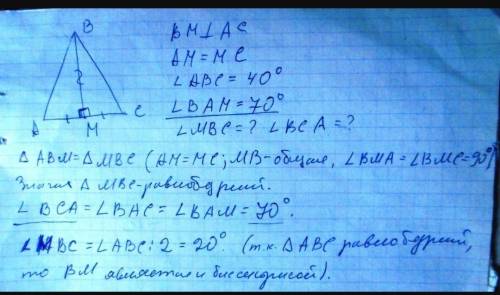 B
A
M
C
BM⊥AC
AM=MC
∠ABC=40°
∠BAM=70°
∠MBC=? ∠BCA=?
△ABM=△MBC (AM=MC; MB-общая, ∠BMA=∠BMC=90°)
Значит △MBC-равнобедрий.
∠BCA=∠BAC=∠BAM=70°.
∠MBC=∠ABC:2=20° (т.к. △ABC равнобедрий,
то BM является и биссектрисой).